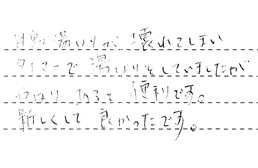 自動湯はりが壊れてしまい
タイマーで湯はりをしていましたが
やはり 便利です。
新しくして良かったです。